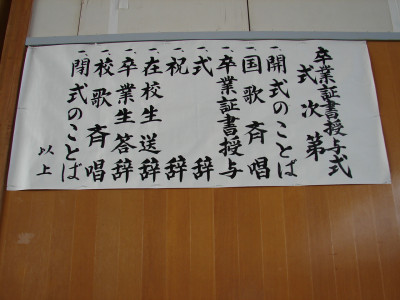 卒業証書授与式
式次第
一、開式のことば
一、国歌斉唱
一、卒業証書授与
一、式辞
一、祝辞
一、在校生送辞
一、卒業生答辞
一、校歌斉唱
一、閉式のことば
以上